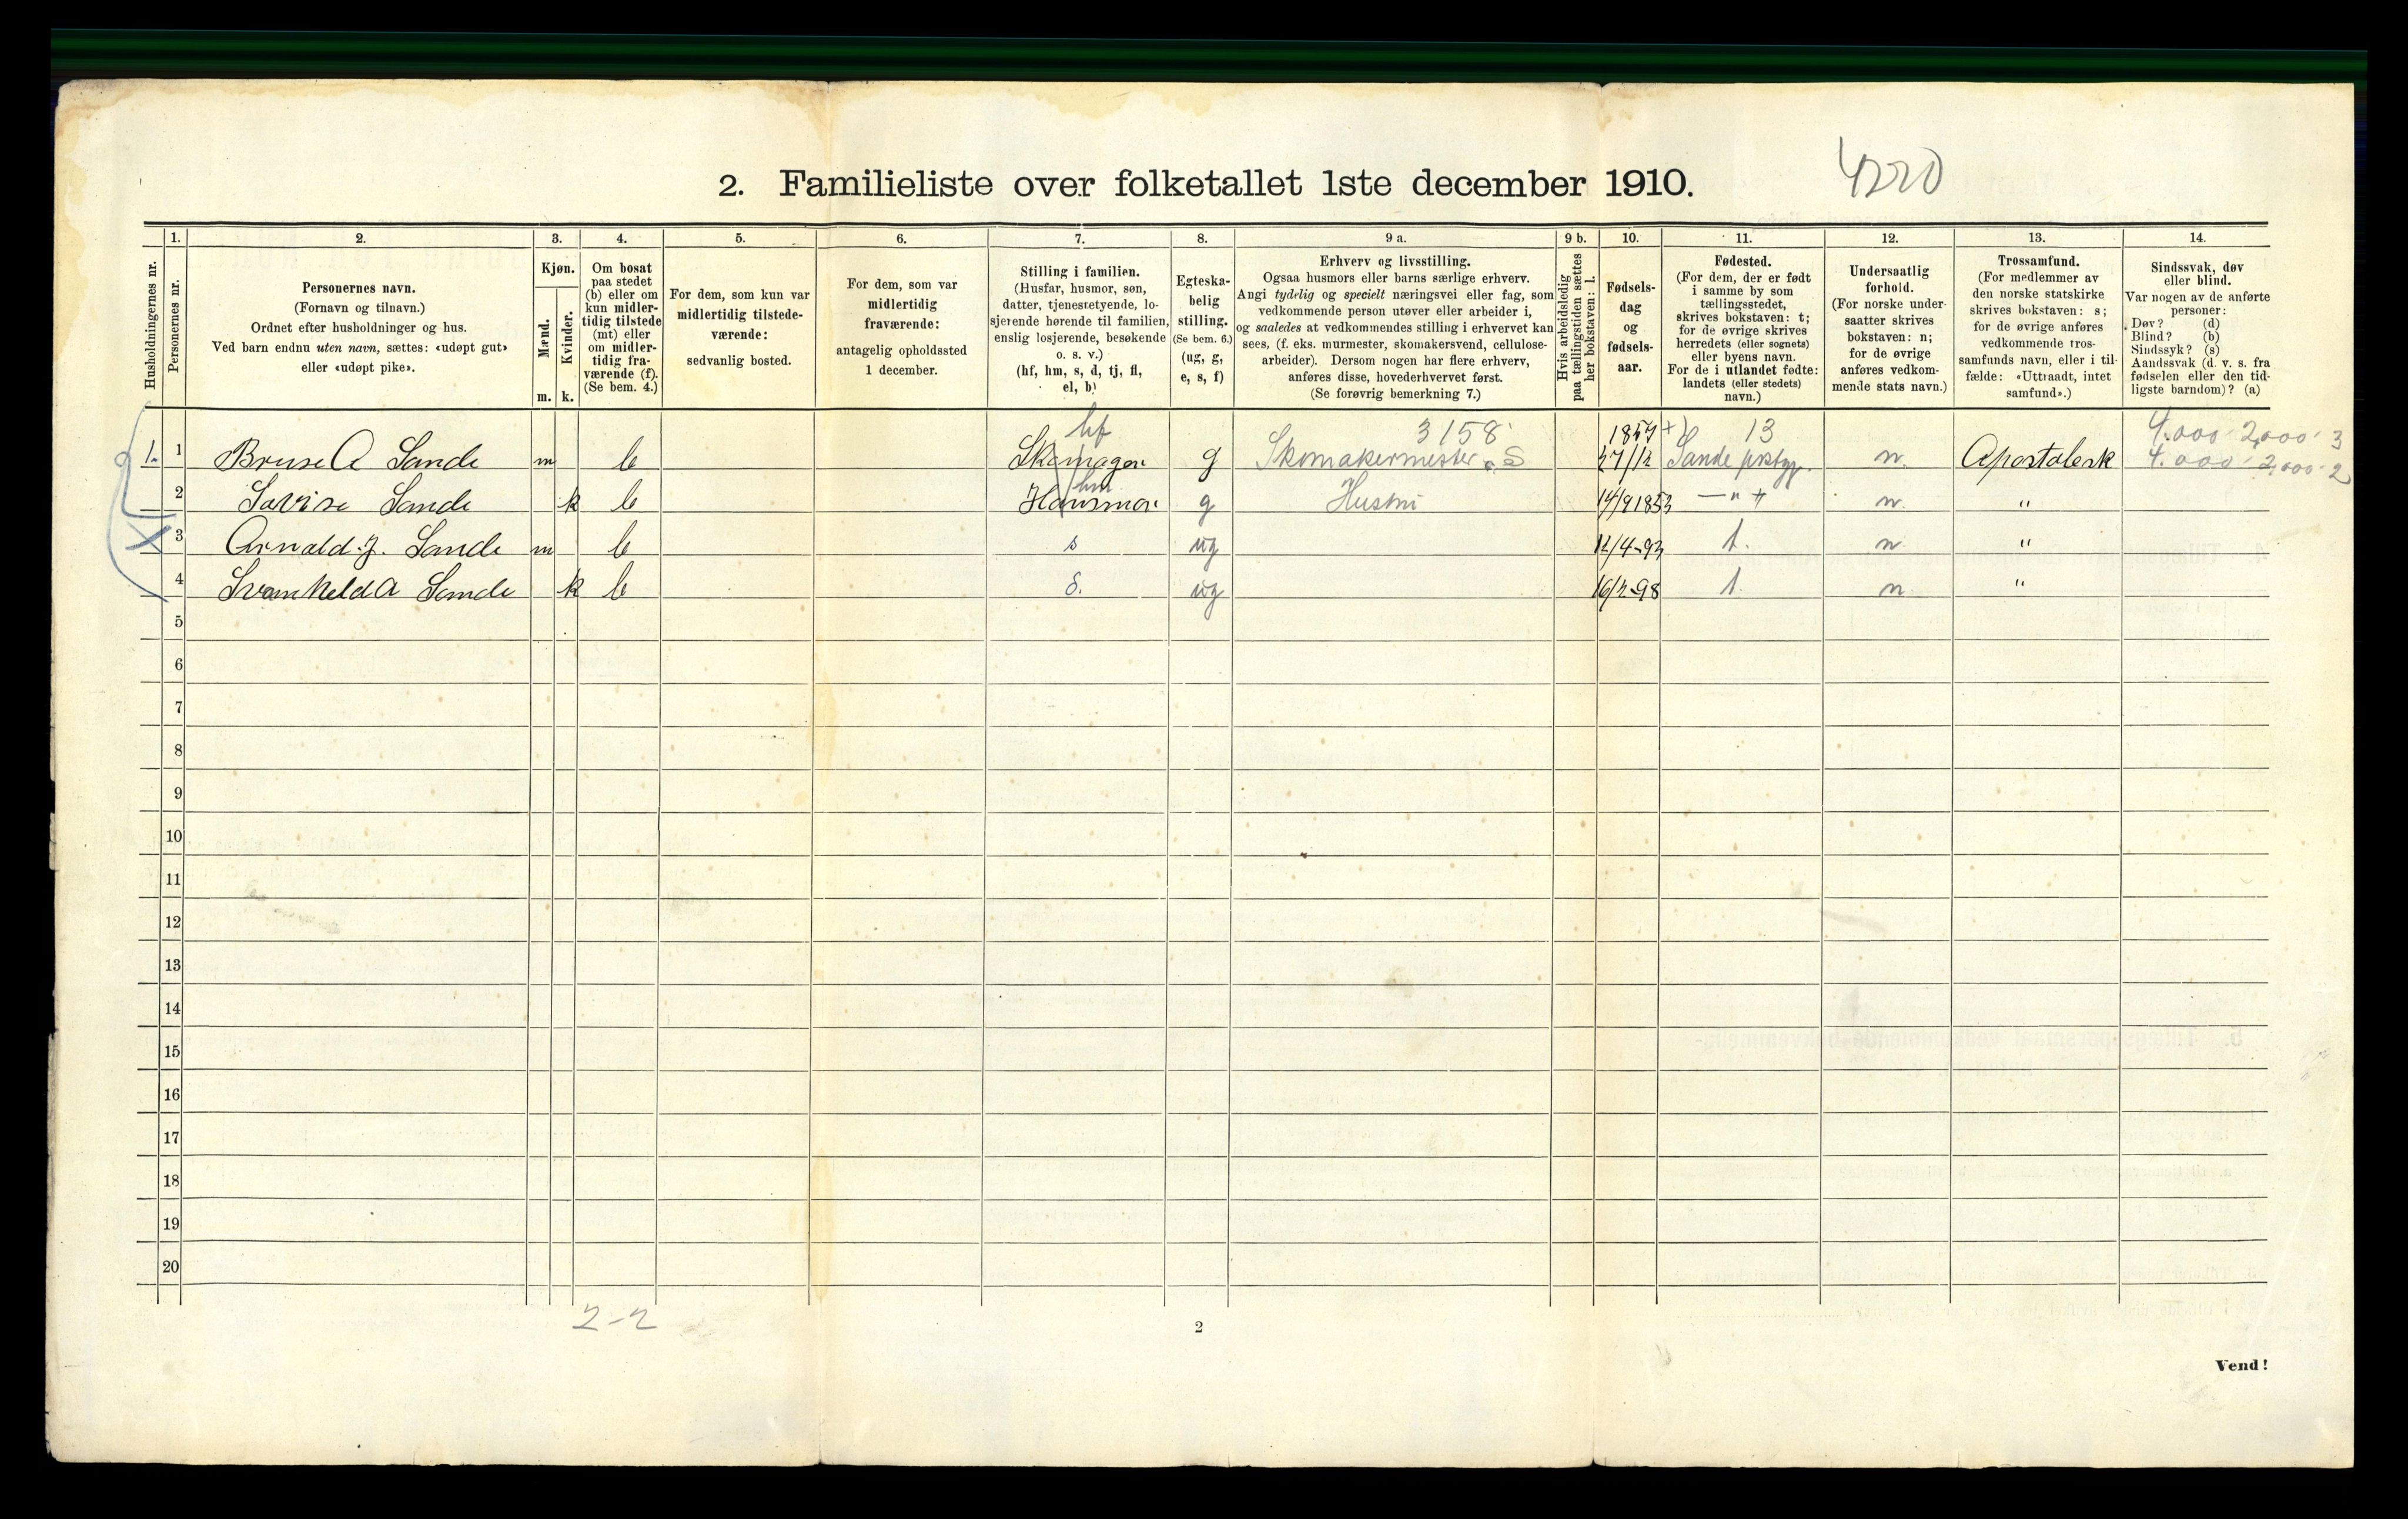 2. Familieliste over folketallet 1ste december 1910.
4220
Husholdningernes nr.
1.
Personernes nr.
2.
Personernes navn.
(Fornavn og tilnavn.)
Ordnet efter husholdninger og hus.
Ved barn endnu uten navn, sættes: «udøpt gut»
eller «udøpt pike».
3.
Kjøn.
Mænd.
Kvinder.
m. k.
4.
Om bosat
paa stedet
(b) eller om
kun midler-
tidig tilstede
(mt) eller
om midler-
tidig fra-
værende (f).
(Se bem. 4.)
5.
For dem, som kun var
midlertidig tilstede-
værende:
sedvanlig bosted.
6.
For dem, som var
midlertidig
fraværende:
antagelig opholdssted
1 december.
7.
Stilling i familien.
(Husfar, husmor, søn,
datter, tjenestetyende, lo-
sjerende hørende til familien,
enslig losjerende, besøkende
o. s. v.)
(hf, hm, s, d, tj, fl,
el, b)
8.
Egteska-
belig
stilling.
(Se bem. 6.)
(ug, g,
e, s, f)
9 a.
Erhverv og livsstilling.
Ogsaa husmors eller barns særlige erhverv.
Angi tydelig og specielt næringsvei eller fag, som
vedkommende person utøver eller arbeider i,
og saaledes at vedkommendes stilling i erhvervet kan
sees, (f. eks. murmester, skomakersvend, cellulose-
arbeider). Dersom nogen har flere erhverv,
anføres disse, hovederhvervet først.
(Se forøvrig bemerkning 7.)
9 b.
Hvis arbeidsledig
paa tællingstiden sættes
her bokstaven: l.
10.
Fødsels-
dag
og
fødsels-
aar.
11.
Fødested.
(For dem, der er født
i samme by som
tællingsstedet,
skrives bokstaven: t;
for de øvrige skrives
herredets (eller sognets)
eller byens navn.
For de i utlandet fødte:
landets (eller stedets)
navn.)
12.
Undersaatlig
forhold.
(For norske under-
saatter skrives
bokstaven: n;
for de øvrige
anføres vedkom-
mende stats navn.)
13.
Trossamfund.
(For medlemmer av
den norske statskirke
skrives bokstaven: s;
for de øvrige anføres
vedkommende tros-
samfunds navn, eller i til-
fælde: «Uttraadt, intet
samfund».)
14.
Sindssvak, døv
eller blind.
Var nogen av de anførte
personer:
Døv? (d)
Blind? (b)
Sindssyk? (s)
Aandssvak (d. v. s. fra
fødselen eller den tid-
ligste barndom)? (a)
hf 3158 1857 13 4.000 2,000 3
1. 1 Bruse A Sande m b Skomager g Skomakermester S 27/12 Sande n. Apostolesk 4.000 2,000 2
hm
2 Lovise Sande k b Hausmor g Hustru 14/9 1853 — " n "
3 Arnald. J. Sande m b s ug 12/4-93 t. n "
4 Svanheld A Sande k b d. ug 16/2-98 t. n "
5
6
7
8
9
10
11
12
13
14
15
16
17
18
19
20
2-2
2
Vend!